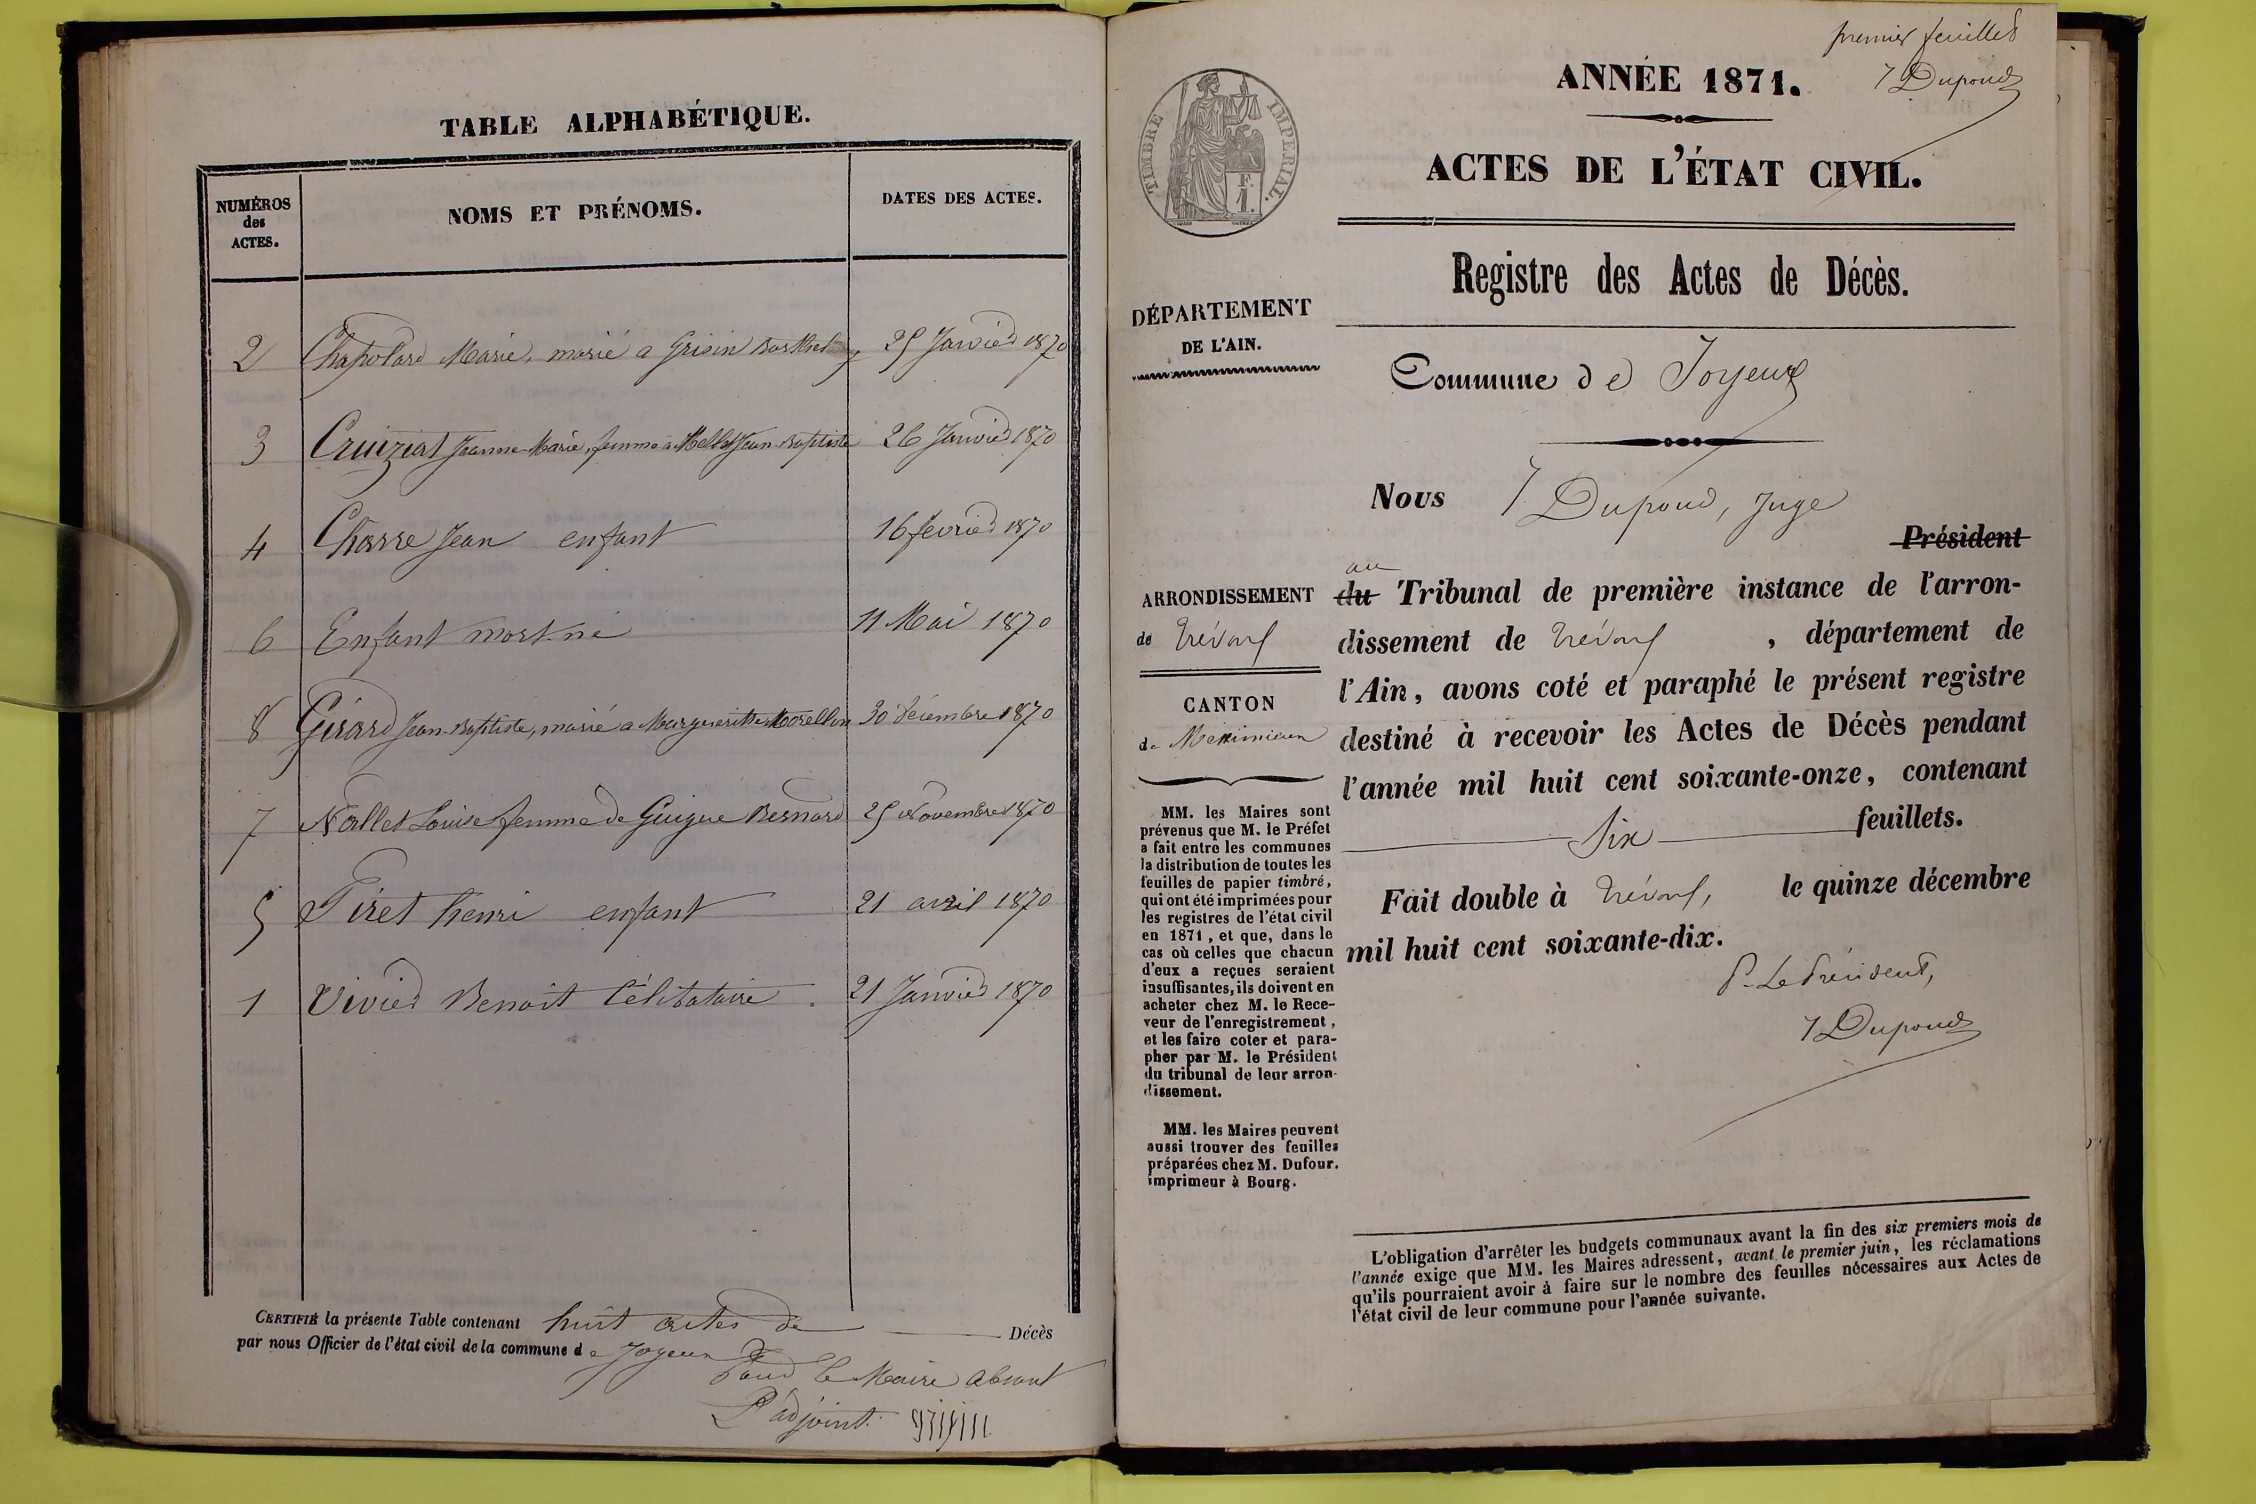 TABLE ALPHABÉTIQUE.
NUMÉROS
des
ACTES.
NOMS ET PRÉNOMS.
DATES DES ACTES.
2 Chapolard Marie, marié a Grisin Barthelemy 25 Janvier 1870
3 Cruiziat Jeanne-Marie, femme a Mellet Jean-Baptiste 26 Janvier 1870
4 Charre Jean enfant 16 fevrier 1870
6 Enfant mort-né 11 Mai 1870
8 Girard Jean-Baptiste, marié a Marguerite Morellon 30 décembre 1870
7 Nallet Louise femme de Guigue Bernard 25 Novembre 1870
5 Piret henri enfant 21 avril 1870
1 Vivier Benoit Célibataire . 21 Janvier 1870
CERTIFIÉ la présente Table contenant huit actes de Décès
par nous Officier de l'état civil de la commune de Joyeux
Pour le Maire absent
L'adjoint
premier feuillet
J Dupond
ANNÉE 1871.
TIMBRE IMPÉRIAL.
F.
1.
ACTES DE L'ÉTAT CIVIL.
Registre des Actes de Décès.
DÉPARTEMENT
DE L'AIN.
Commune de Joyeux
Nous J Dupond, Juge
Président
au
ARRONDISSEMENT
de Trévoux
CANTON
de Meximieux
du Tribunal de première instance de l'arron-
dissement de Trévoux , département de
l'Ain, avons coté et paraphé le présent registre
destiné à recevoir les Actes de Décès pendant
l'année mil huit cent soixante-onze, contenant
Six feuillets.
Fait double à Trévoux, le quinze décembre
mil huit cent soixante-dix.
P. Le Président,
J Dupond
MM. les Maires sont
prévenus que M. le Préfet
a fait entre les communes
la distribution de toutes les
feuilles de papier timbré,
qui ont été imprimées pour
les registres de l'état civil
en 1871, et que, dans le
cas où celles que chacun
d'eux a reçues seraient
insuffisantes, ils doivent en
acheter chez M. le Rece-
veur de l'enregistrement,
et les faire coter et para-
pher par M. le Président
du tribunal de leur arron-
dissement.
MM. les Maires peuvent
aussi trouver des feuilles
préparées chez M. Dufour,
imprimeur à Bourg.
L'obligation d'arrêter les budgets communaux avant la fin des six premiers mois de
l'année exige que MM. les Maires adressent, avant le premier juin, les réclamations
qu'ils pourraient avoir à faire sur le nombre des feuilles nécessaires aux Actes de
l'état civil de leur commune pour l'année suivante.